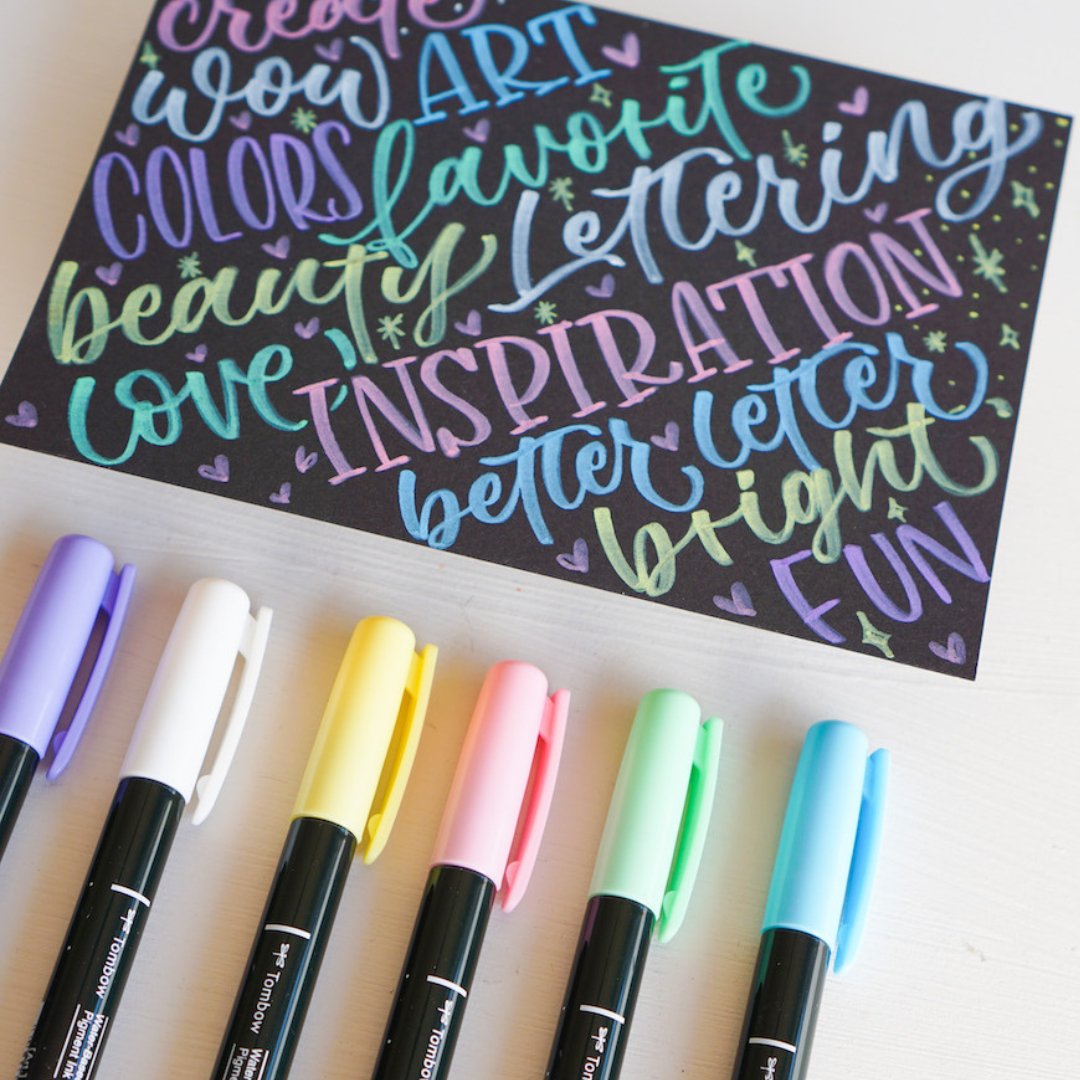 create
wow ART
COLORS favorite
beauty Lettering
love, INSPIRATION
better letter,
bright,
FUN
Tombow
Water-Based
Pigment Ink
Tombow
Water
Pigme
Tombow
Tom